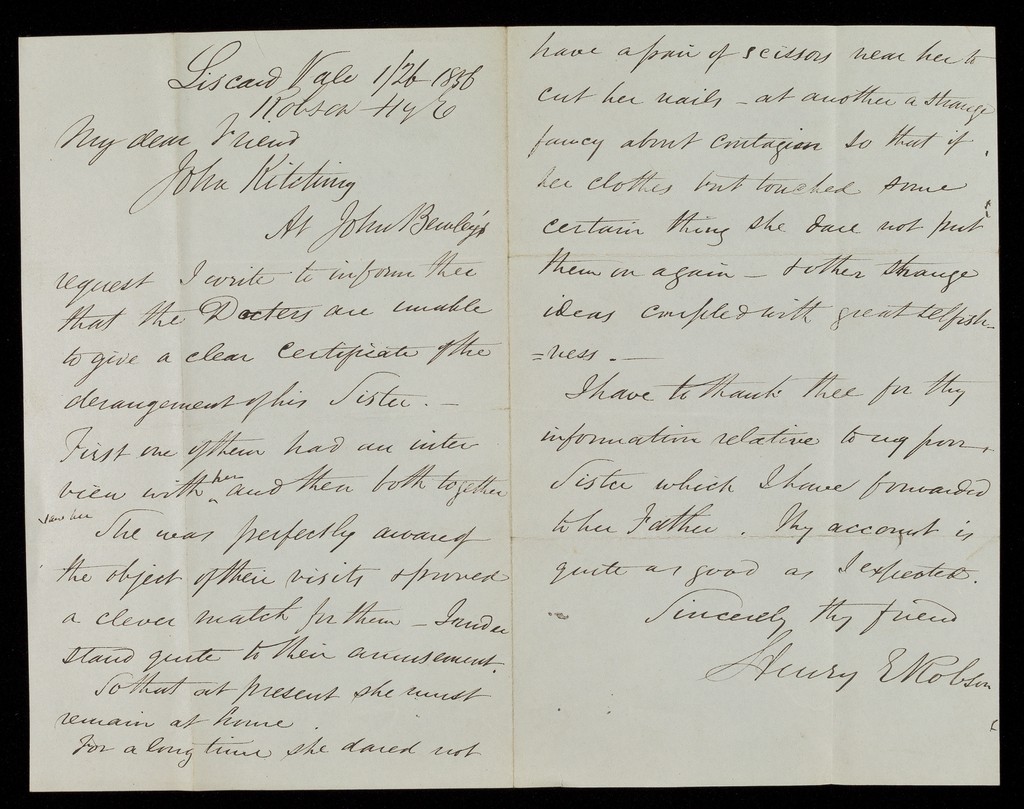 Liscard Vale 1/26 1856
Robson Hy E
My dear Friend
John Kitching
At John Bewley's
request I write to inform thee
that the Docters are unable
to give a clear certificate of the
derangement of his Sister. —
First one of them had an inter
view with her and then both together
saw her
She was perfectly aware of
the object of their visits & proved
a clever match for them — I under
stand quite to their amusement.
So that at present she must
remain at home.
For a long time she dared not
have a pair of scissors near her to
cut her nails — at another a strange
fancy about contagion so that if
her clothes but touched some
certain thing she dare not put
them on again — & other strange
ideas coupled with great selfish-
=ness. —
I have to thank thee for thy
information relative to my poor
Sister which I have forwarded
to her Father. Thy account is
quite as good as I expected.
Sincerely thy friend
Henry E Robson